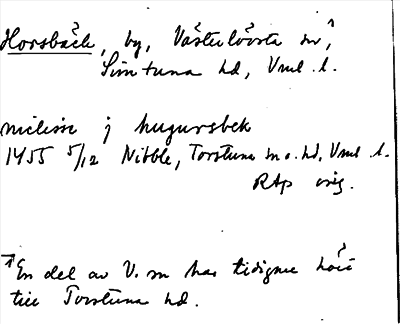 Horsbäck, by, Västerlövsta sn,¹
Simtuna hd, Vml. l.
nielisse j hugursbek
1455 5/12 Nibble, Torstuna sn o. hd, Vml. l.
RAp orig.
¹En del av V. sn har tidigare hört
till Torstuna hd.